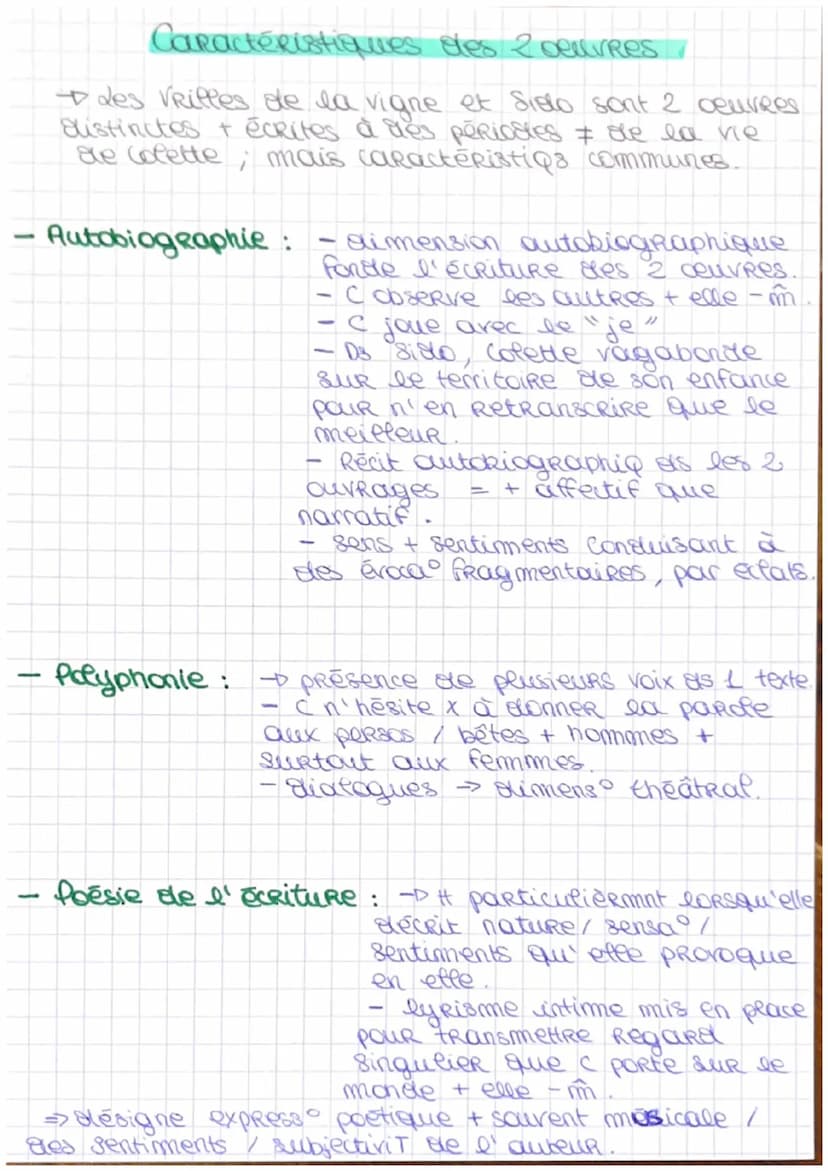 Caractéristiques des 2 oeuvres
→ Les vrilles de la vigne et Sido sont 2 oeuvres
distinctes + écrites à des périodes ≠ de la vie
de Colette ; mais caractéristiqs communes.
- Autobiographie : - dimension autobiographique
fonde l'écriture des 2 oeuvres.
- C observe les autres + elle - m̂.
- C joue avec le "je"
- Ds Sido, Colette vagabonde
sur le territoire de son enfance
pour n'en retranscrire que le
meilleur.
- Récit autobiographiq ds les 2
ouvrages = + affectif que
narratif.
- sens + sentiments conduisant à
des évoca° fragmentaires, par éclats.
- Polyphonie : → présence de plusieurs voix ds 1 texte.
- C n'hésite x à donner la parole
aux persos / bêtes + hommes +
surtout aux femmes.
- dialogues → dimens° théâtral.
- Poésie de l'écriture : → tt particulièrmnt lorsqu'elle
décrit nature / sensa° /
sentiments qu'elle provoque
en elle.
- lyrisme intime mis en place
pour transmettre regard
singulier que C porte sur le
monde + elle - m̂.
⇒ désigne express° poétique + souvent musicale /
des sentiments / subjectiviT de l'auteur.